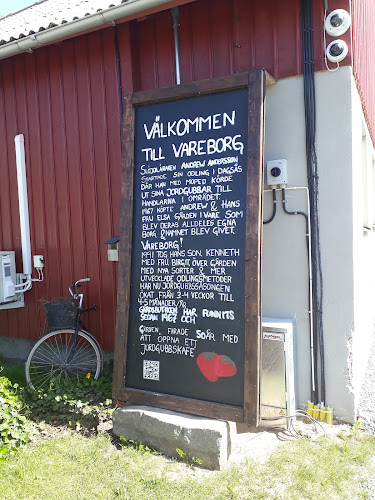 VÄLKOMMEN
TILL VAREBORG
SLÖJDLÄRAREN ANDREW ANDERSSON
STARTADE SIN ODLING I DAGSÅS
DÄR HAN MED MOPED KÖRDE
UT SINA JORDGUBBAR TILL
HANDLARNA I OMRÅDET.
1967 KÖPTE ANDREW & HANS
FRU ELSA GÅRDEN I VARE SOM
BLEV DERAS ALLDELES EGNA
BORG & NAMNET BLEV GIVET.
VAREBORG!
1991 TOG HANS SON, KENNETH
MED FRU, BIRGIT, ÖVER GÅRDEN
MED NYA SORTER & MER
UTVECKLADE ODLINGSMETODER
HAR NU JORDGUBBSSÄSONGEN
ÖKAT FRÅN 3-4 VECKOR TILL
4-5 MÅNADER/ÅR
GÅRDSBUTIKEN HAR FUNNITS
SEDAN 1967 OCH
GÅRDEN FIRADE 50ÅR MED
ATT ÖPPNA ETT
JORDGUBBSKAFÉ